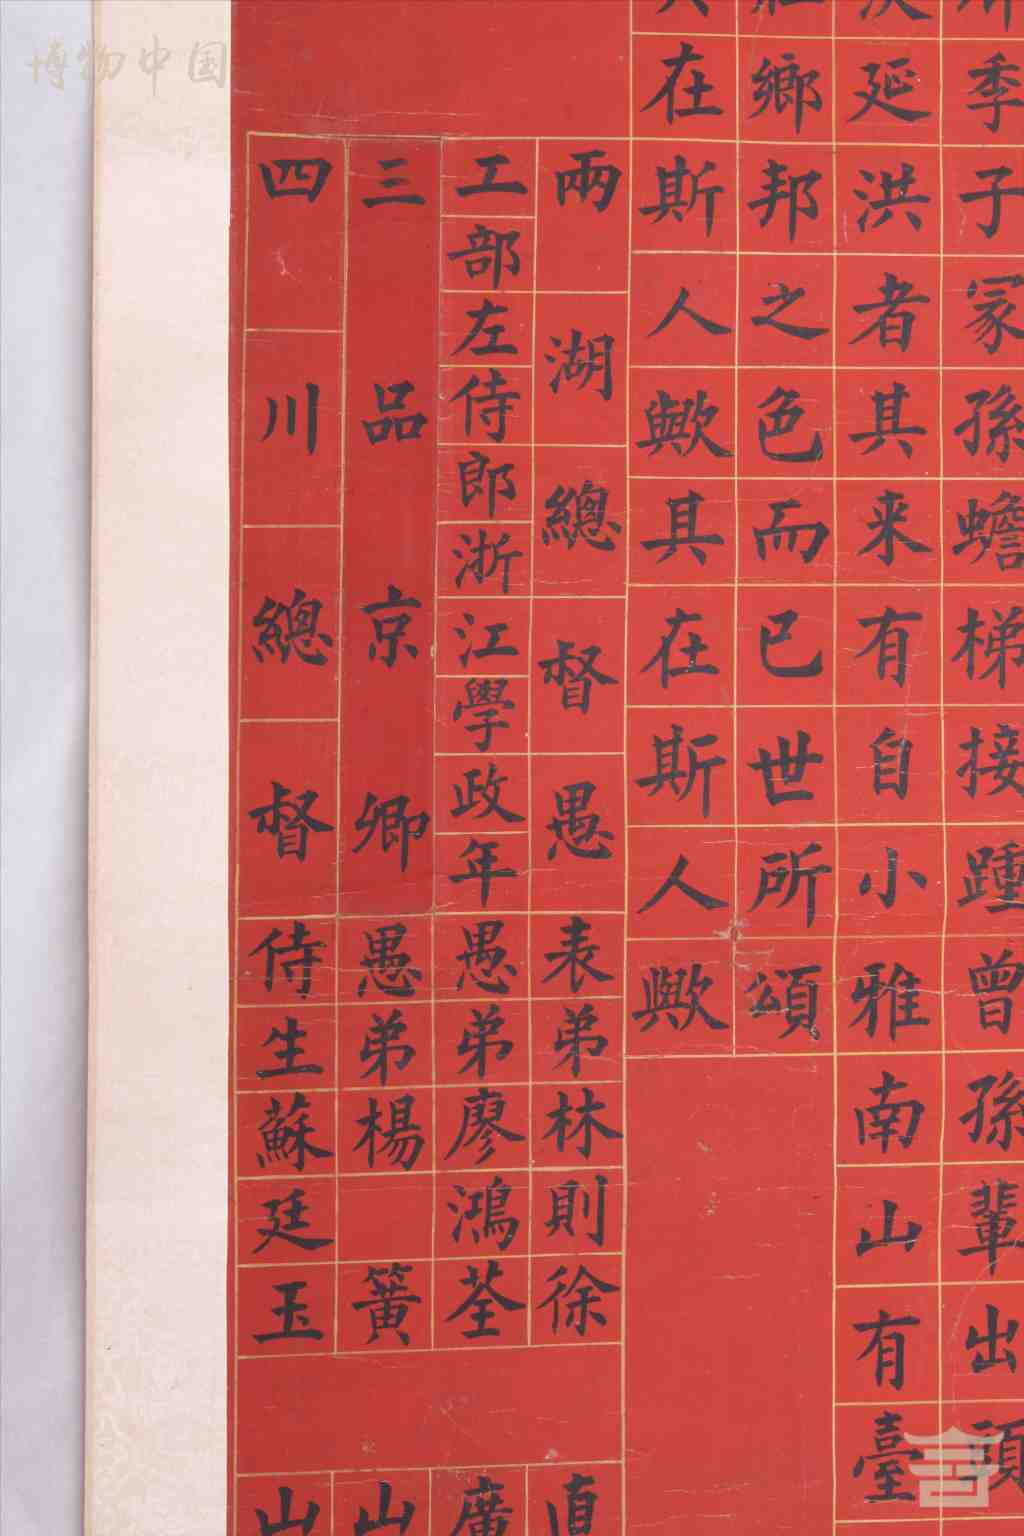 季子冢孫蟾梯接踵曾孫輩出頭
延洪者其来有自小雅南山有臺
鄉邦之色而已世所頌
在斯人歟其在斯人歟
兩湖總督愚表弟林則徐
工部左侍郎浙江學政年愚弟廖鴻荃
三品京卿愚弟楊簧
四川總督侍生蘇廷玉
直
廣
山
山
博物中国